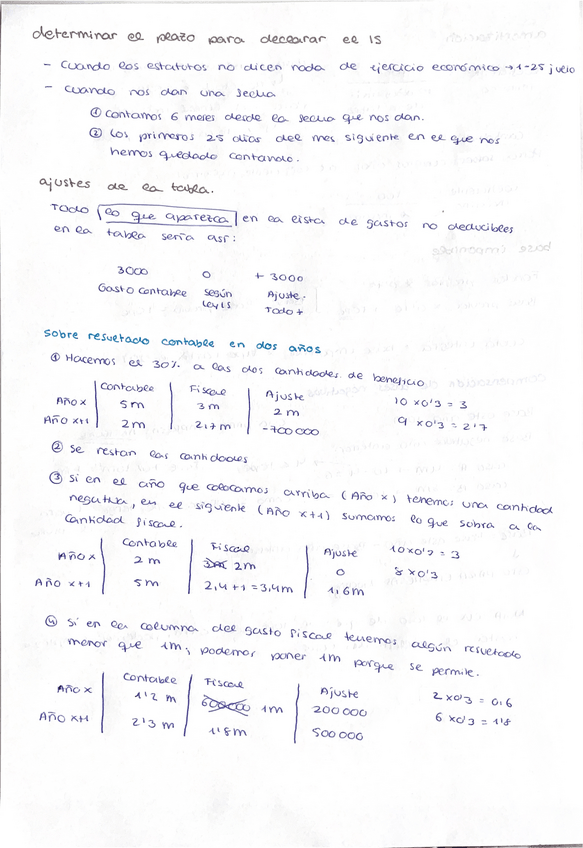 determinar el plazo para declarar el IS
- Cuando los estatutos no dicen nada de ejercicio económico → 1-25 julio
- Cuando nos dan una fecha
① Contamos 6 meses desde la fecha que nos dan.
② Los primeros 25 días del mes siguiente en el que nos
hemos quedado contando.
ajustes de la tabla.
Todo lo que aparezca en la lista de gastos no deducibles
en la tabla sería así:
3000 0 + 3000
Gasto contable según Ajuste.
Ley IS Todo +
Sobre resultado contable en dos años
① Hacemos el 30% a las dos cantidades de beneficio
Contable Fiscal Ajuste
Año x 5m 3m 2m 10 x0'3 = 3
Año x+1 2m 2,7m -700000 9 x0'3 = 2'7
② Se restan las cantidades
③ Si en el año que colocamos arriba (Año x) tenemos una cantidad
negativa, en el siguiente (Año x+1) sumamos lo que sobra a la
cantidad fiscal.
Contable Fiscal Ajuste 10x0'3 = 3
Año x 2m 2m 0 8 x0'3
Año x+1 5m 2,4+1=3,4m 1,6m
④ Si en la columna del gasto fiscal tenemos algún resultado
menor que 1m, podemos poner 1m porque se permite.
Contable Fiscal Ajuste
Año x 1'2 m 600000 1m 200000 2 x0'3 = 0,6
Año x+1 2'3 m 1'8m 500000 6 x0'3 = 1'8